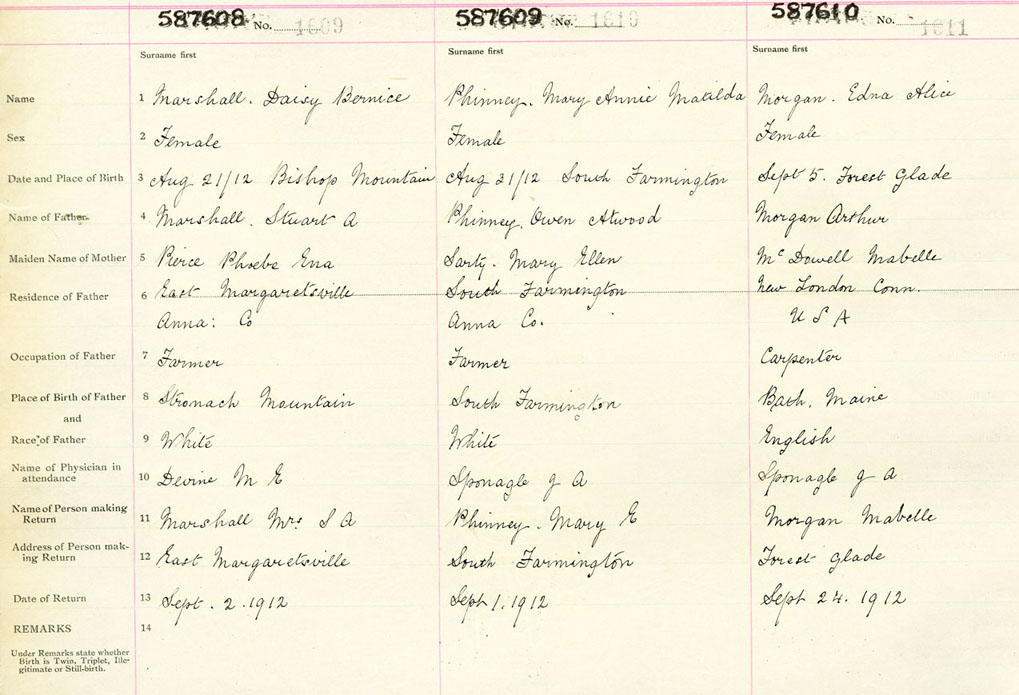 587608 No. 1609 587609 No. 1610 587610 No. 1611
Surname first Surname first Surname first
Name 1 Marshall. Daisy Bernice Phinney. Mary Annie Matilda Morgan. Edna Alice
Sex 2 Female Female Female
Date and Place of Birth 3 Aug 21/12 Bishop Mountain Aug 31/12 South Farmington Sept 5. Forest Glade
Name of Father 4 Marshall. Stuart A Phinney. Owen Atwood Morgan Arthur
Maiden Name of Mother 5 Pierce Phoebe Ena Sarty. Mary Ellen McDowell Mabelle
Residence of Father 6 East Margaretsville South Farmington New London Conn.
Anna: Co Anna Co. U S A
Occupation of Father 7 Farmer Farmer Carpenter
Place of Birth of Father 8 Stronach Mountain South Farmington Bath, Maine
and
Race of Father 9 White White English
Name of Physician in
attendance 10 Devine M E Sponagle J A Sponagle J A
Name of Person making
Return 11 Marshall Mrs S A Phinney. Mary E Morgan Mabelle
Address of Person mak-
ing Return 12 East Margaretsville South Farmington Forest Glade
Date of Return 13 Sept. 2. 1912 Sept 1. 1912 Sept 24. 1912
REMARKS 14
Under Remarks state whether
Birth is Twin, Triplet, Ille-
gitimate or Still-birth.